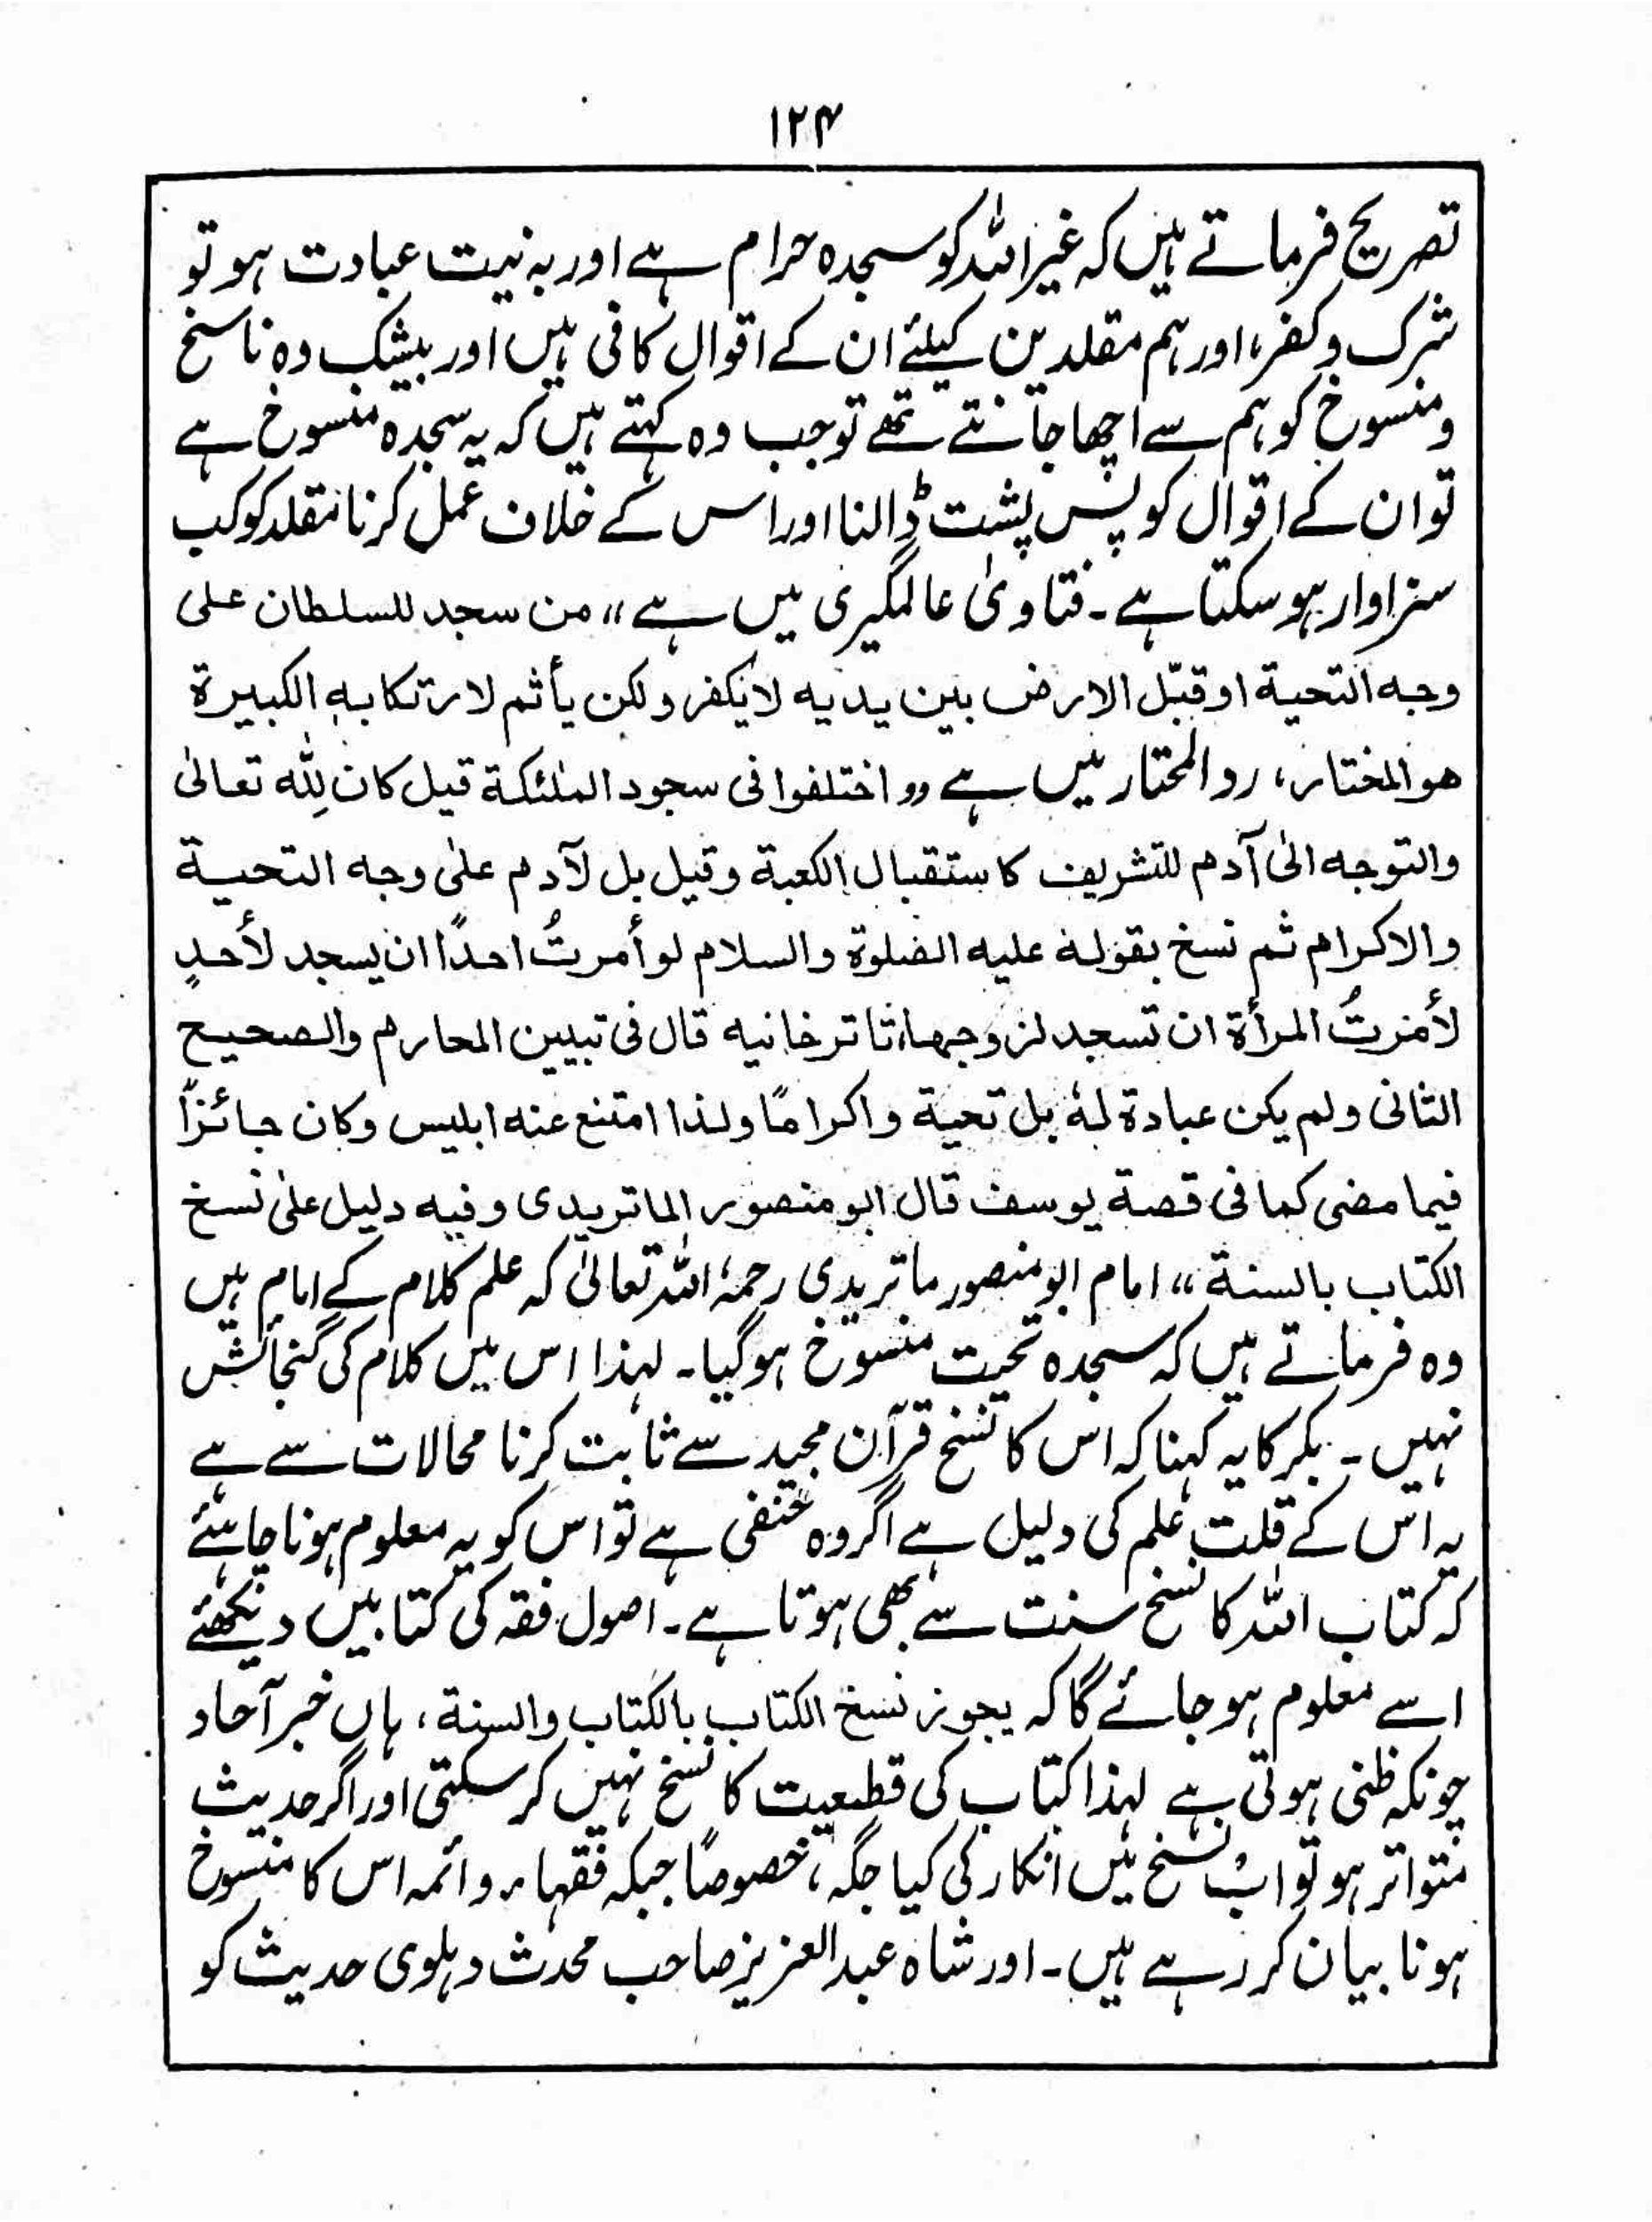 ۱۲۴
تصریح فرماتے ہیں کہ غیر اللہ کو سجدہ حرام ہے اور بہ نیت عبادت ہو تو
شرک و کفر، اور ہم مقلدین کیلئے ان کے اقوال کافی ہیں اور بیشک وہ ناسخ
و منسوخ کو ہم سے اچھا جانتے تھے تو جب وہ کہتے ہیں کہ یہ سجدہ منسوخ ہے
تو ان کے اقوال کو پس پشت ڈالنا اور اس کے خلاف عمل کرنا مقلد کو کب
سزاوار ہو سکتا ہے۔ فتاویٰ عالمگیری میں ہے ،، من سجد للسلطان علی
وجہ التحیة او قبّل الارض بین یدیہ لا یکفر ولکن یأثم لارتکابہ الکبیرة
ھو المختار، رد المحتار میں ہے ,, اختلفوا فی سجود الملٰئکة قیل کان لِلّٰہ تعالیٰ
والتوجہ الیٰ آدم للتشریف کاستقبال الکعبة وقیل بل لآدم علیٰ وجہ التحیة
والاکرام ثم نسخ بقولہ علیہ الصلوٰة والسلام لو أمرتُ احدًا ان یسجد لأحدٍ
لأمرتُ المرأة ان تسجد لزوجھا، تاترخانیہ قال فی تبیین المحارم والصحیح
الثانی ولم یکن عبادة لہٗ بل تحیة واکرامًا ولذا امتنع عنہ ابلیس وکان جائزًا
فیما مضی کما فی قصة یوسف قال ابو منصور الماتریدی وفیہ دلیل علیٰ نسخ
الکتاب بالسنة ،، امام ابو منصور ماتریدی رحمۃ اللہ تعالیٰ کہ علم کلام کے امام ہیں
وہ فرماتے ہیں کہ سجدہ تحیت منسوخ ہو گیا۔ لہذا اس میں کلام کی گنجائش
نہیں۔ بکر کا یہ کہنا کہ اس کا نسخ قرآن مجید سے ثابت کرنا محالات سے ہے
یہ اس کے قلت علم کی دلیل ہے اگر وہ حنفی ہے تو اس کو یہ معلوم ہونا چاہئے
کہ کتاب اللہ کا نسخ سنت سے بھی ہوتا ہے۔ اصول فقہ کی کتابیں دیکھئے
اسے معلوم ہو جائے گا کہ یجوز نسخ الکتاب بالکتاب والسنة، ہاں خبر آحاد
چونکہ ظنی ہوتی ہے لہذا کتاب کی قطعیت کا نسخ نہیں کر سکتی اور اگر حدیث
متواتر ہو تو اب نسخ میں انکار کی کیا جگہ، خصوصًا جبکہ فقہاء و ائمہ اس کا منسوخ
ہونا بیان کر رہے ہیں۔ اور شاہ عبد العزیز صاحب محدث دہلوی حدیث کو